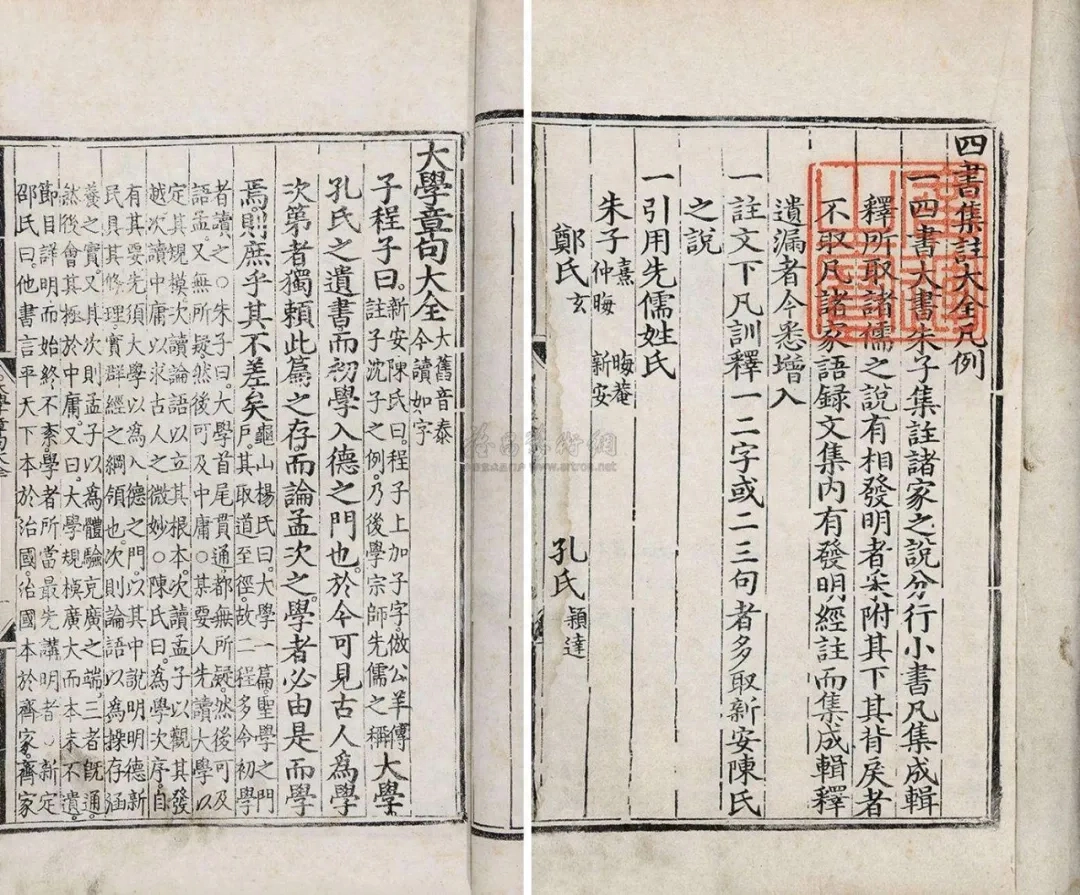 四書集註大全凡例
一四書大書朱子集註諸家之說分行小書凡集成輯
釋所取諸儒之說有相發明者采附其下其背戾者
不取凡諸家語録文集內有發明經註而集成輯釋
遺漏者今悉增入
一註文下凡訓釋一二字或二三句者多取新安陳氏
之說
一引用先儒姓氏
朱子 熹 仲晦 晦菴 新安
鄭氏 玄 孔氏 穎達
大學章句大全 大舊音泰 今讀如字
子程子曰。新安陳氏曰。程子上加子字。倣公羊傳 註子沈子之例。乃後學宗師先儒之稱 大學
孔氏之遺書而初學入德之門也。於今可見古人為學
次第者獨賴此篇之存。而論孟次之。學者必由是而學
焉則庶乎其不差矣 龜山楊氏曰。大學一篇。聖學之門 戶。其取道至徑。故二程多令初學
者讀之。○朱子曰。大學首尾貫通。都無所疑。然後可及
語孟。又無所疑然後可及中庸○某要人先讀大學以
定其規模。次讀論語以立其根本。次讀孟子以觀其發
越。次讀中庸以求古人之微妙。○陳氏曰。為學次序。自
有其要。先須大學以為入德之門。以其中說明明德新
民。具其修理。實群經之綱領也。次則論語以為操存涵
養之實。又其次則孟子以為體驗充廣之端。三者既通。
然後會其極於中庸。又曰。大學規模廣大而本末不遺。
節目詳明而始終不紊。學者所當最先講明者○新定
邵氏曰。他書言平天下本於治國。治國本於齊家。齊家
雅昌藝術網
www.artron.net